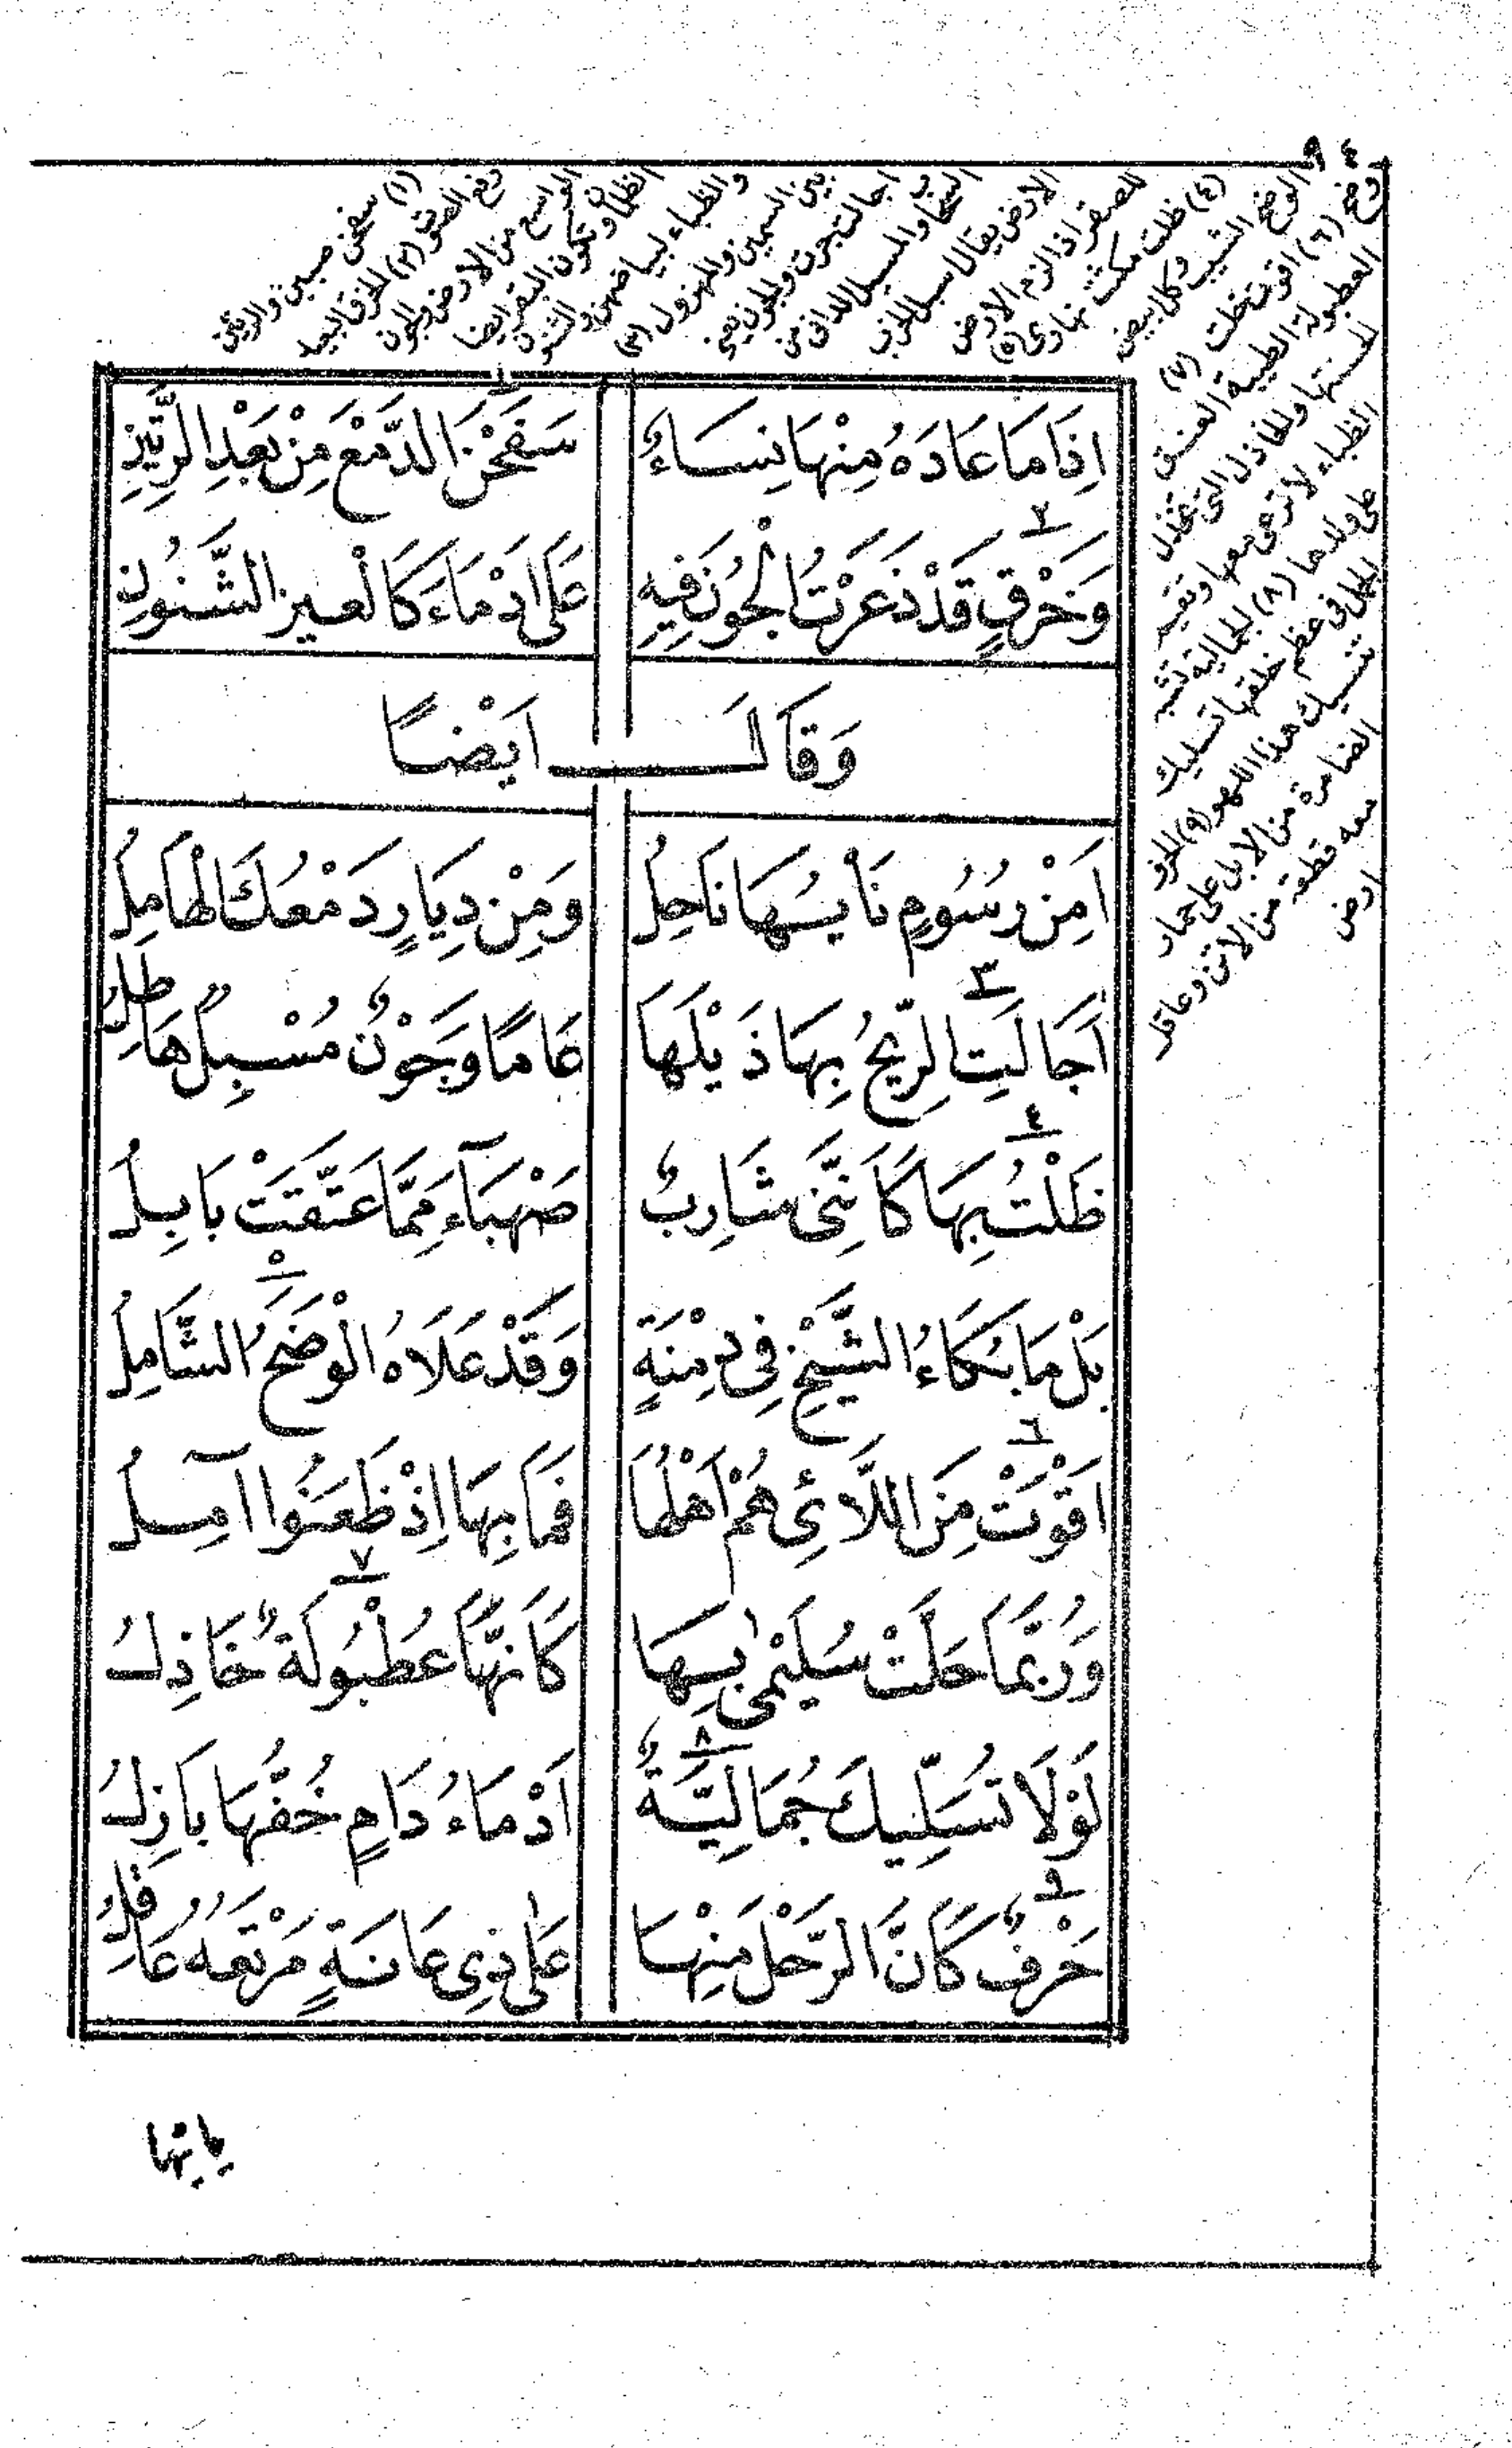 ٩٤
(١) سفحن صببن والرنين
رفع الصوت (٢) الخرق البعيد
الواسع من الارض والجون
الظباء وتكون البقر ايضا
والظباء لبياضهن والشنون
بين السمين والمهزول (٣)
اجالت جرت والجون يعني
السحاب والمسبل الداني من
الارض يقال اسبل المزن
(٤) ظلت مكثت نهاري (٥)
الوضح الشيب وكل ابيض
وضح (٦) اقوت خلت (٧)
العطبولة الظبية العنق
على ولدها (٨) الجمالية تشبه
الجمل في عظم خلقها تسليك
تنسيك هذا اللهو (٩) الحرف
الضامرة من الابل على حمار
معه قطعة من الاتن وعاقل
ارض
اِذَا مَا عَادَهُ مِنْهَا نِسَاءٌ سَفَحْنَ الدَّمْعَ مِنْ بَعْدِ الرَّنِينِ
وَخَرْقٍ قَدْ ذَعَرْتُ الْجُونَ فِيهِ عَلَى اَدْمَاءَ كَالْعَيرِ الشَّنُونِ
وَقَالَ اَيْضًا
اَمِنْ رُسُومٍ نَأيُهَا نَاحِلُ وَمِنْ دِيَارٍ دَمْعُكَ الْهَامِلُ
اَجَالَتِ الرِّيحُ بِهَا ذَيْلَهَا عَامًا وَجَوْنٌ مُسْبِلٌ هَاطِلُ
ظَلْتُ بِهَا كَاَنَّنِى شَارِبٌ صَهْبَآءَ مِمَّا عَتَّقَتْ بَابِلُ
بَلْ مَا بُكَاءُ الشَّيْخِ فِى دِمْنَةٍ وَقَدْ عَلَاهُ الْوَضَحُ الشَّامِلُ
اَقْوَتْ مِنَ اللَّائِى هُمُ اَهْلُهَا فَمَا بِهَا اِذْ ظَعَنُوا آمِلُ
وَرُبَّمَا حَلَّتْ سُلَيْمٰى بِهَا كَاَنَّهَا عُطْبُولَةٌ خَاذِلُ
لَوْلَا تُسَلِّيكَ جُمَالِيَّةٌ اَدْمَاءُ دَامٍ خُفُّهَا بَازِلُ
حَرْفٌ كَاَنَّ الرَّحْلَ مِنْهَا عَلٰى ذِى عَانَةٍ مَرْتَعُهُ عَاقِلُ